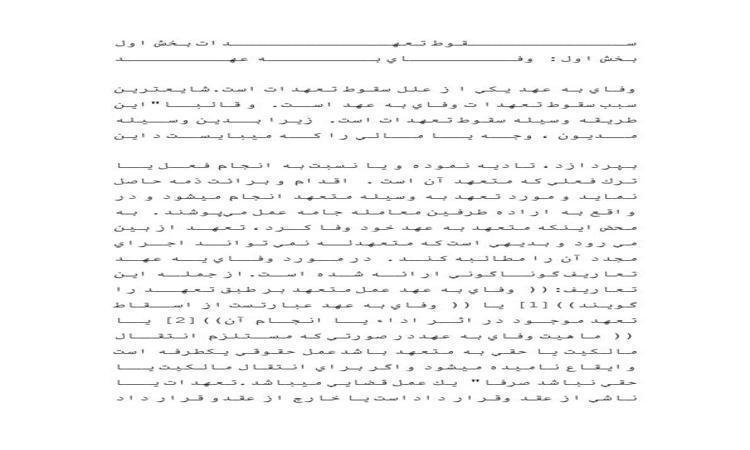 سقوط تعهدات بخش اول
بخش اول : وفاي به عهد
وفاي به عهد يكي ا ز علل سقوط تعهدات است.شايعترين
سبب سقوط تعهدا ت وفاي به عهد است. و قالبا" اين
طريقه وسيله سقوط تعهدات است. زيرا بدين وسيله
مديون ، وجه يا مالي را كه ميبايست د اين
بپردازد، تاديه نموده و يا نسبت به انجام فعل يا
ترك فعلي كه متعهد آن است . اقدام و برائت ذمه حاصل
نمايد و مورد تعهد به وسيله متعهد انجام ميشود و در
واقع به اراده طرفين معامله جامه عمل مي‌پوشند . به
محض اينكه متعهد به عهد خود وفا كرد، تعهد از بين
مي رود و بديهي است كه متعهدله نمي تواند اجراي
مجدد آن را مطالبه كند. در مورد وفاي به عهد
تعاريف گوناگوني ارائه شده است.از جمله اين
تعاريف:(( وفاي به عهد عمل متعهد بر طبق تعهد را
گويند))[1] يا (( وفاي به عهد عبارتست از اسقاط
تعهد موجود در اثر اداء يا انجام آن))[2] يا
(( ماهيت وفاي به عهد در صورتي كه مستلزم انتقال
مالكيت يا حقي به متعهد باشد عمل حقوقي يكطرفه است
و ايقاع ناميده ميشود و اگر براي انتقال مالكيت يا
حقي نباشد صرفا" يك عمل قضايي ميباشد.تعهدات يا
ناشي از عقد وقرار داد است يا خارج از عقد و قرار داد